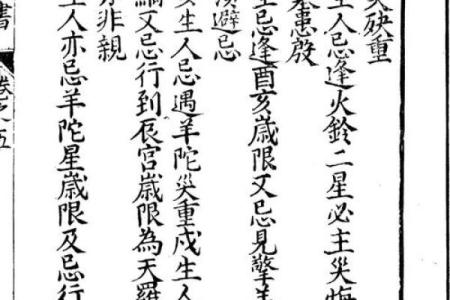 重
生人忌逢火鈴二星必主災悔
患
生忌逢酉亥歲限又忌見擎羊
避忌
生人忌遇羊陀災重戌生人
又忌行到辰宮歲限為天羅
非親
生人亦忌羊陀星歲限及忌行
書 卷之五